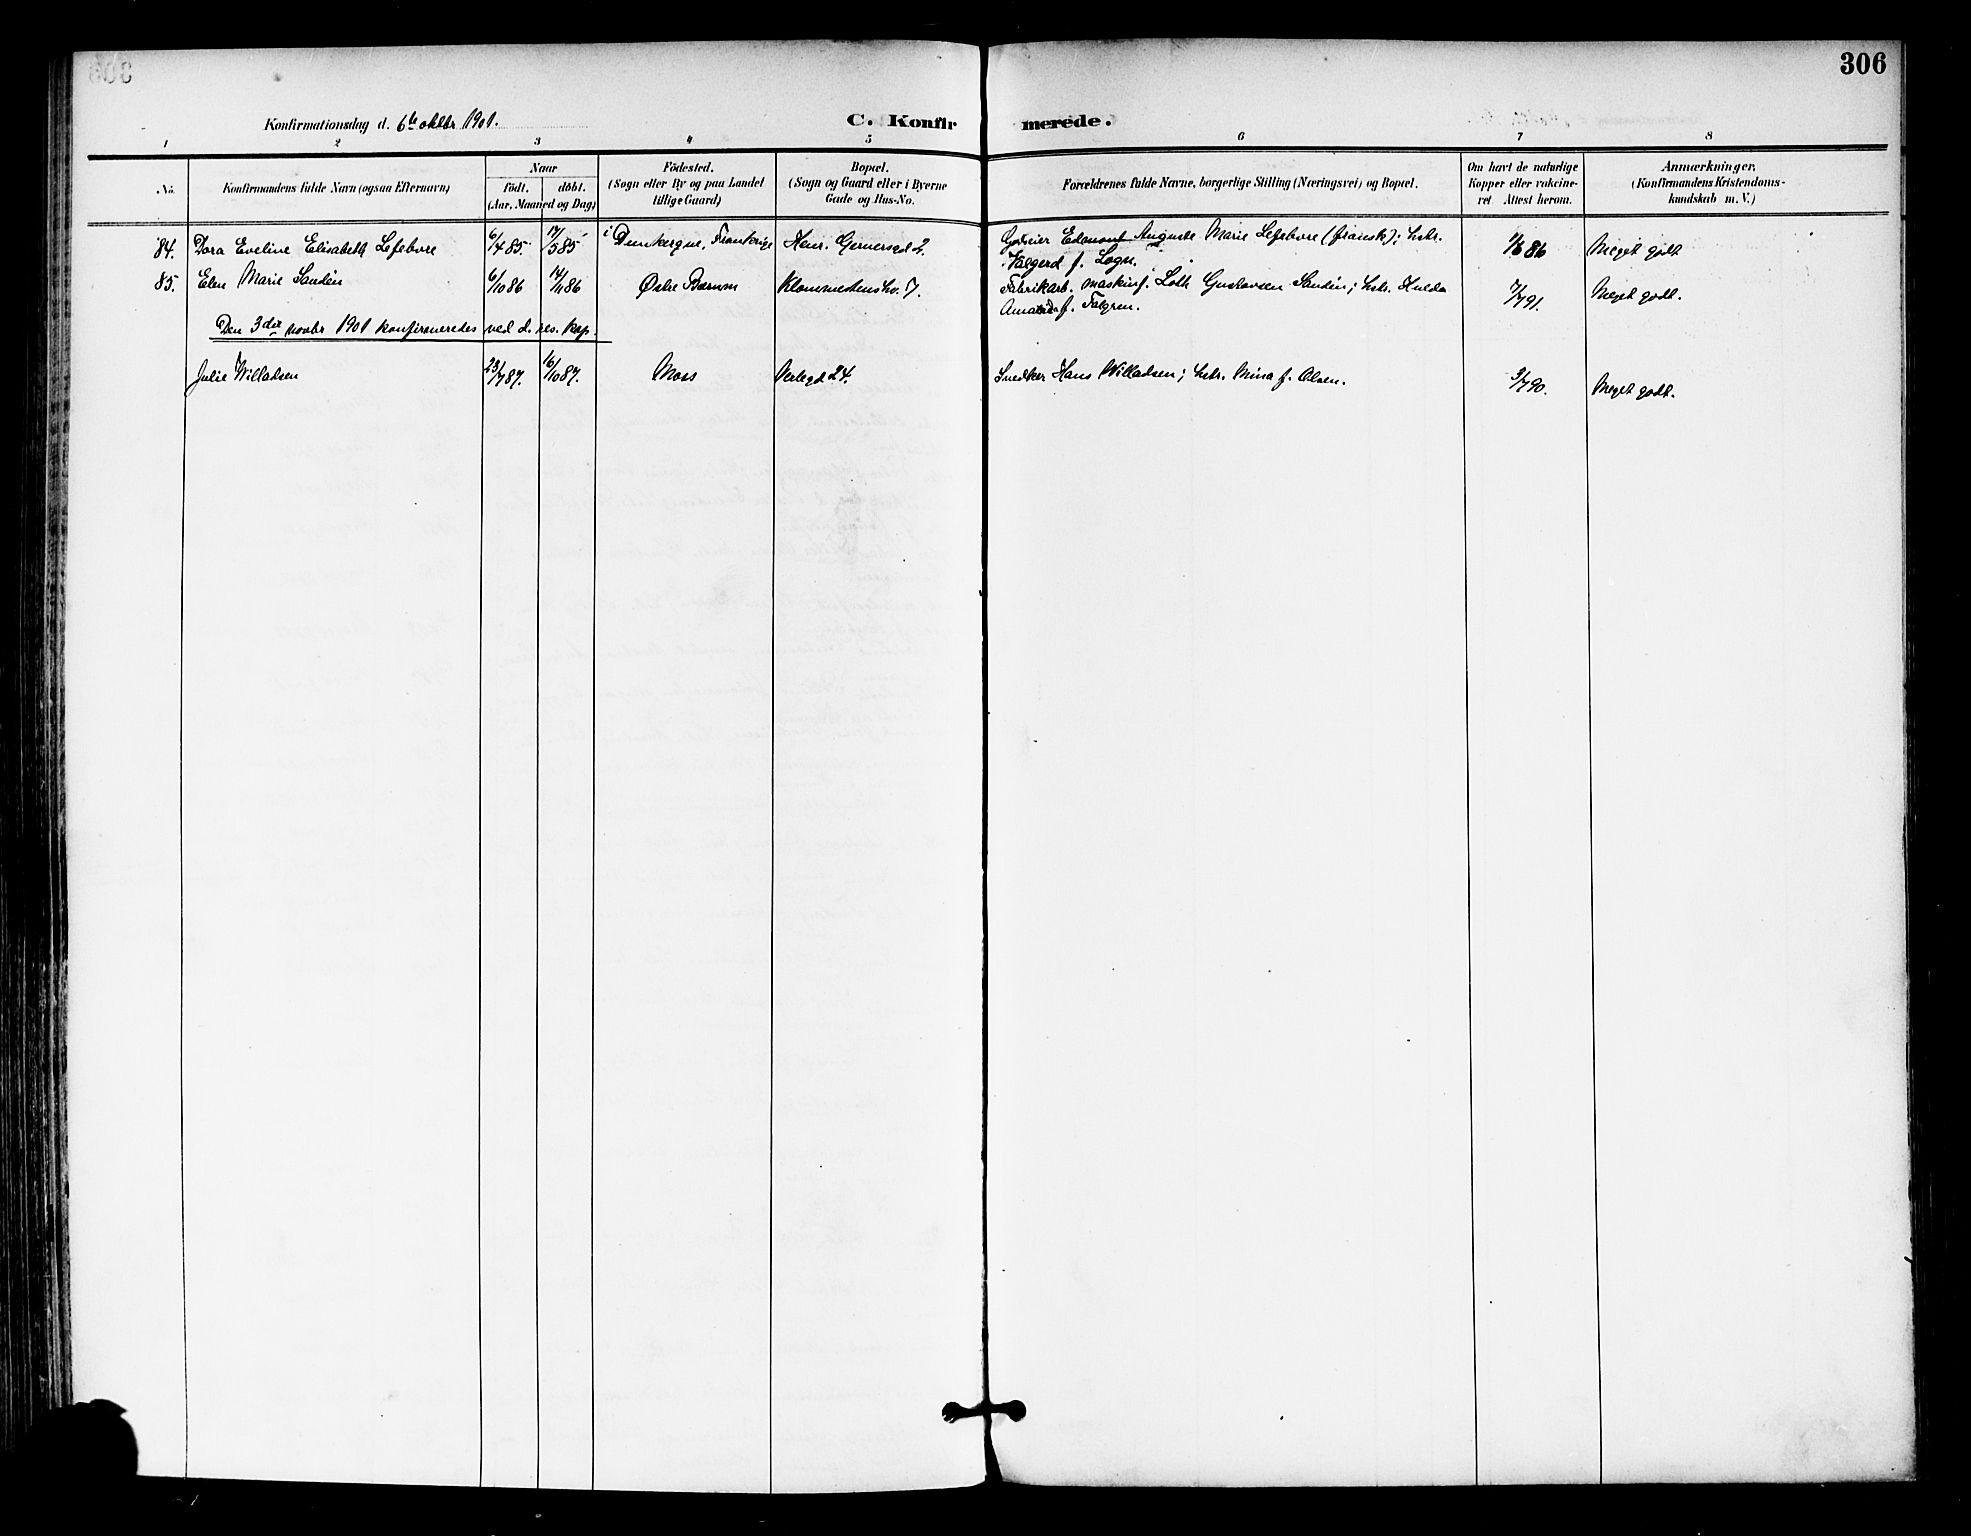 306
Konfirmationsdag d. 6te oktbr 1901.
C. Konfirmerede.
1 2 3 4 5 6 7 8
No.
Konfirmandens fulde Navn (ogsaa Efternavn)
Naar
födt. döbt.
(Aar, Maaned og Dag)
Födested.
(Sogn eller By og paa Landet
tillige Gaard)
Bopæl.
(Sogn og Gaard eller i Byerne
Gade og Hus-No.
Forældrenes fulde Navne, borgerlige Stilling (Næringsvei) og Bopæl.
Om havt de naturlige
Kopper eller vakcine-
ret Attest herom.
Anmærkninger,
(Konfirmandens Kristendoms-
kundskab m. V.)
84. Dora Eveline Elisabeth Lefebvre 6/4 85. 17/5 85 i Dunkerque, Frankrige Henr. Gernersgd 2. Edmont Auguste Marie Lefebvre (fransk); hstr. 86 Meget godt
Valgerd f. Logn.
85. Elen Marie Sandén 6/10 86 14/11 86 Østre Bærum Klommestensbo. 7. Fabrikarb. maskinf. Loth Gustavsen Sandén; hstr. Hulda 7/7 91. Meget godt.
Amanda f. Falgren.
Den 3die novbr 1901 konfirmeredes ved d. res. kap.
Julie Willadsen 23/7 87. 16/10 87. Moss Verlegd 24. Snedker Hans Willadsen; hstr. Mina f. Olsen. 3/7 90. Meget godt.